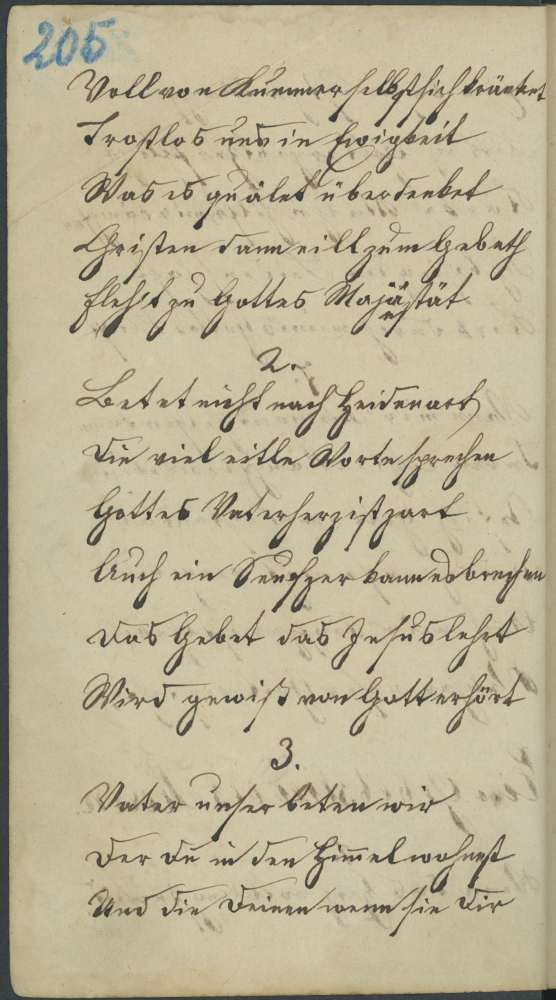 205
Voll von Kummer selbst sich kränket
Trostlos und in Ewigkeit
Was es quälet überdenket
Christen dann eillt zum Gebeth
fleh't zu Gottes Majästät
2.
Betet nicht nach Heidenart
Die viel eitle Worte sprechen
Gottes Vaterherz ist zart
Auch ein Seufzer kann es brechen
Das Gebet das Jesus lehrt
Wird gewiß von Gott erhört
3.
Vater unser beten wir
Der Du in den Himmel wohnest
Und die Deinen wenn sie Dir